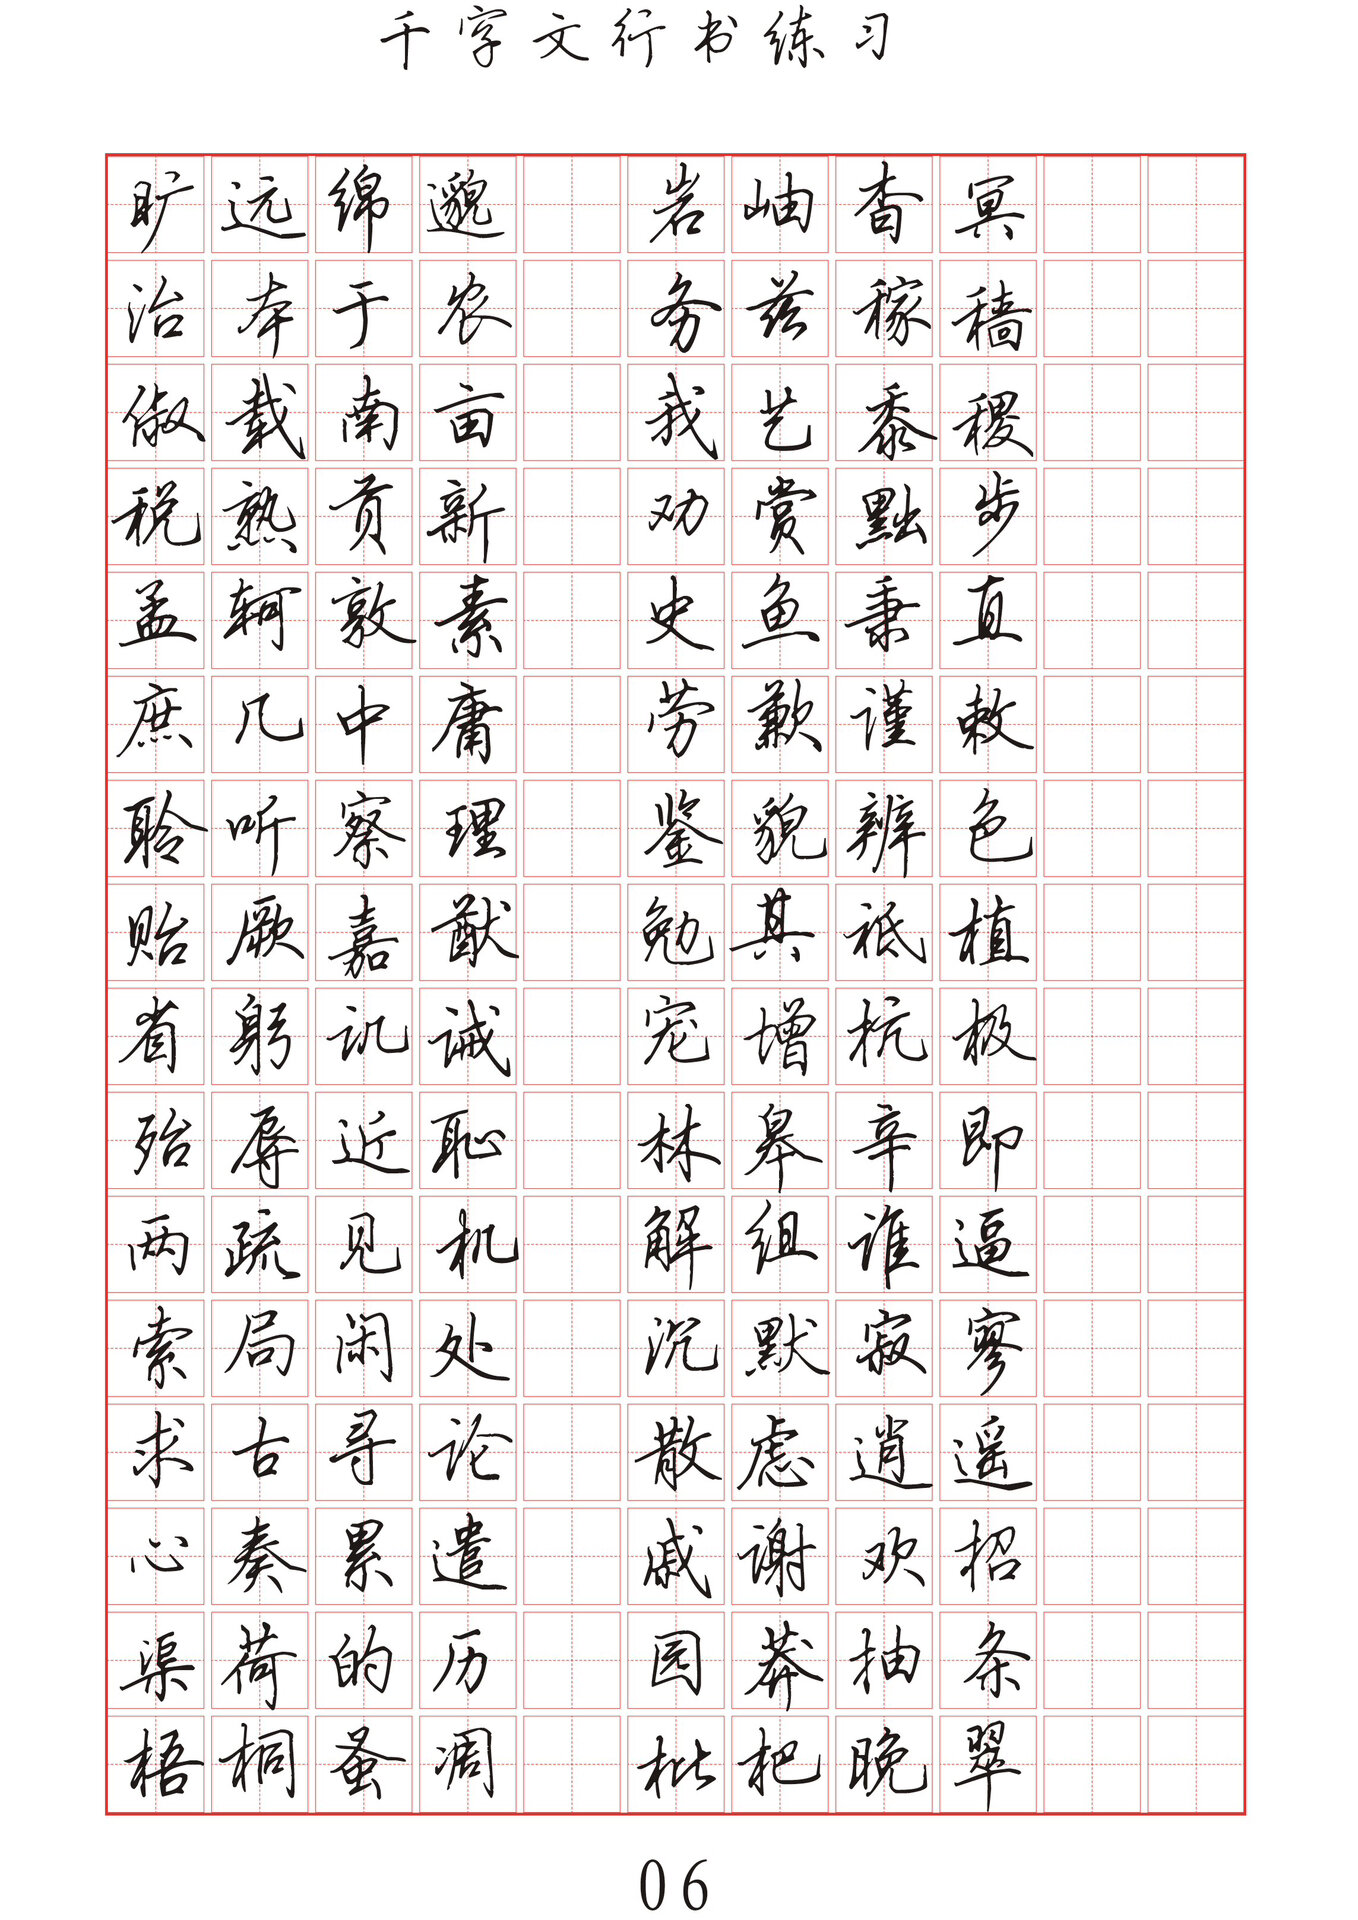 千字文行书练习
旷远绵邈 岩岫杳冥
治本于农 务兹稼穑
俶载南亩 我艺黍稷
税熟贡新 劝赏黜步
孟轲敦素 史鱼秉直
庶几中庸 劳歉谨敕
聆听察理 鉴貌辨色
贻厥嘉猷 勉其祗植
省躬讥诫 宠增抗极
殆辱近耻 林皋辛即
两疏见机 解组谁逼
索局闲处 沉默寂寥
求古寻论 散虑逍遥
心奏累遣 戚谢欢招
渠荷的历 园莽抽条
梧桐蚤凋 枇杷晚翠
06